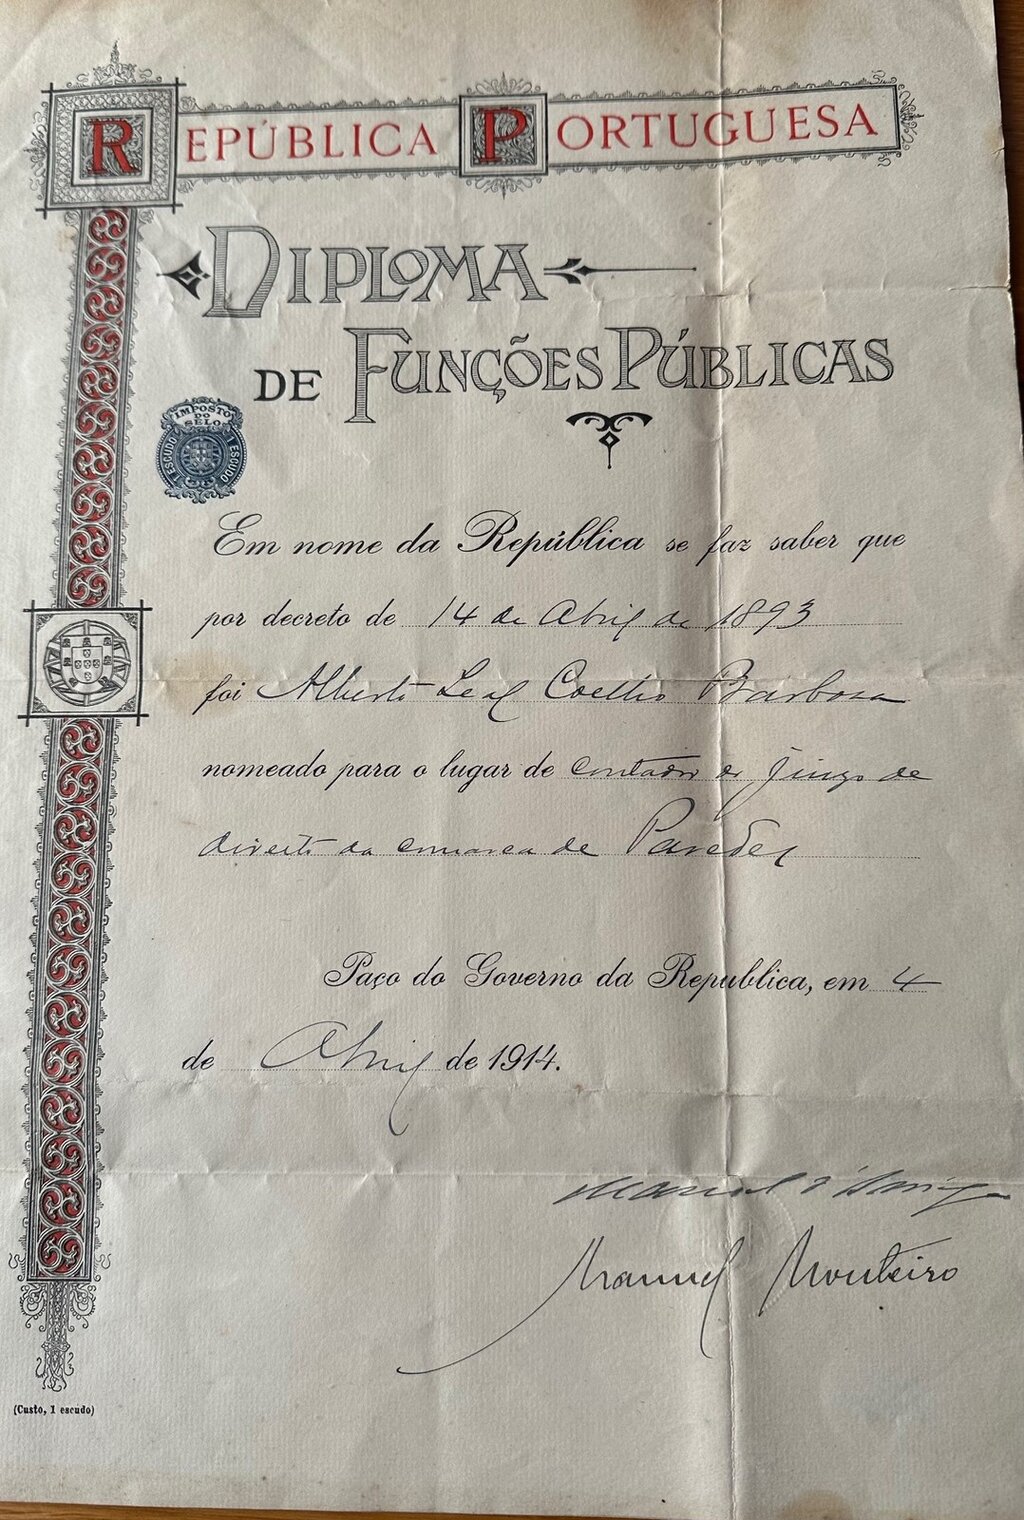 REPÚBLICA PORTUGUESA
DIPLOMA
DE FUNÇÕES PÚBLICAS
IMPOSTO
DO
SELO
1 ESCUDO 1 ESCUDO
Em nome da República se faz saber que
por decreto de 14 de Abril de 1893
foi Alberto Leal Coelho Barbosa
nomeado para o lugar de contador do juizo de
direito da comarca de Paredes
Paço do Governo da Republica, em 4
de Abril de 1914.
Manuel d'Arriaga
Manuel Monteiro
(Custo, 1 escudo)